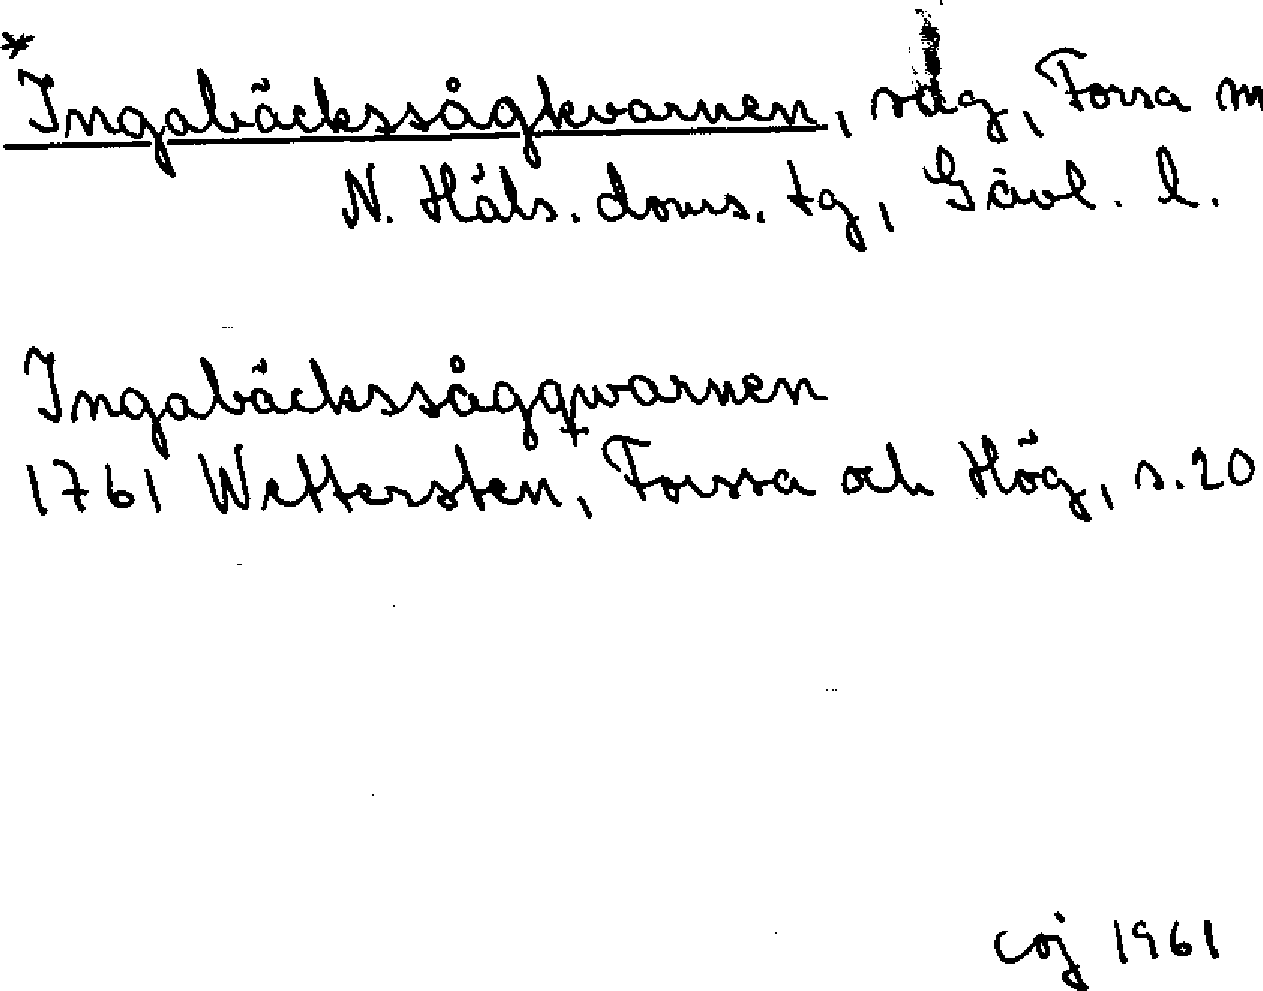 *Ingabäckssågkvarnen, såg, Forsa m
N. Häls. doms. tg, Gävl. l.
Ingabäckssågqwarnen
1761 Wettersten, Forssa och Hög, s. 20
coj 1961